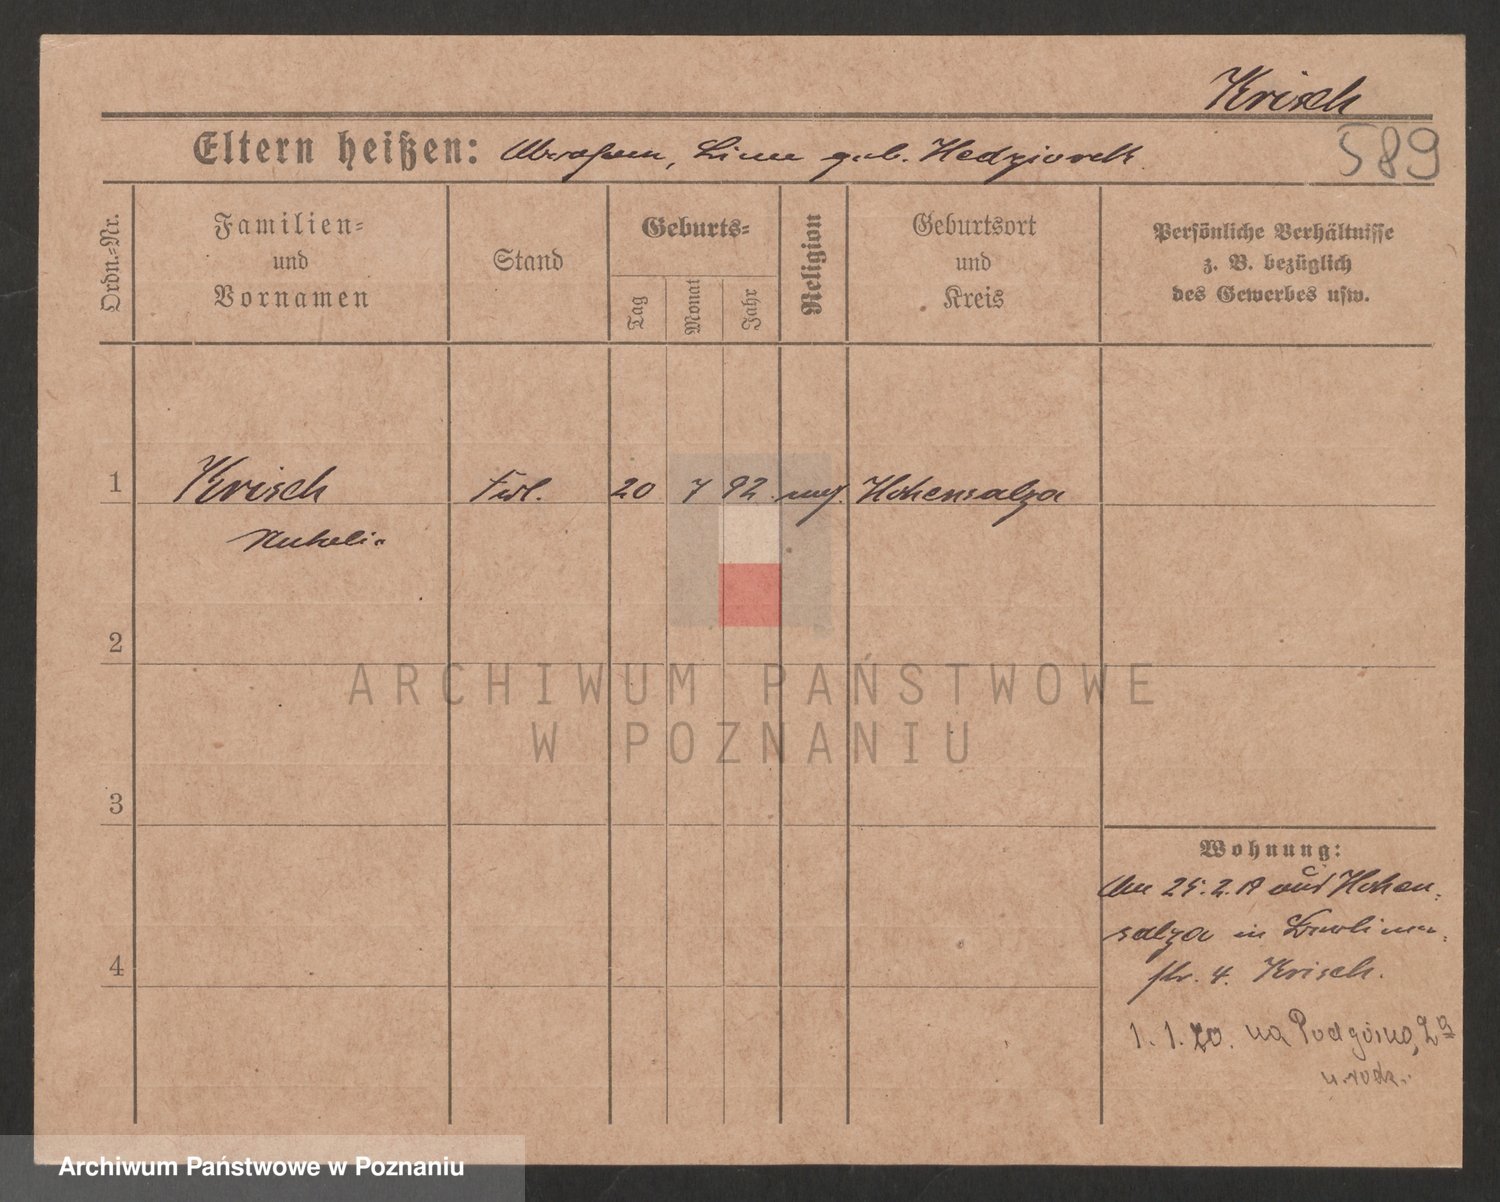 Krisch
589
Eltern heißen: Abraham, Line geb. Kedziorek
Ordn.-Nr.
Familien-
und
Vornamen
Stand
Geburts-
Tag
Monat
Jahr
Religion
Geburtsort
und
Kreis
Persönliche Verhältnisse
z. B. bezüglich
des Gewerbes usw.
1
Krisch
Frl.
20
7
92
Hohensalza
2
ARCHIWUM PAŃSTWOWE
W POZNANIU
3
4
Wohnung:
Am 25.2.18 aus Hohen-
salza in
str. 4. Krisch.
1. 1. 20. na Podgórną, 2
u. rodz.
Archiwum Państwowe w Poznaniu